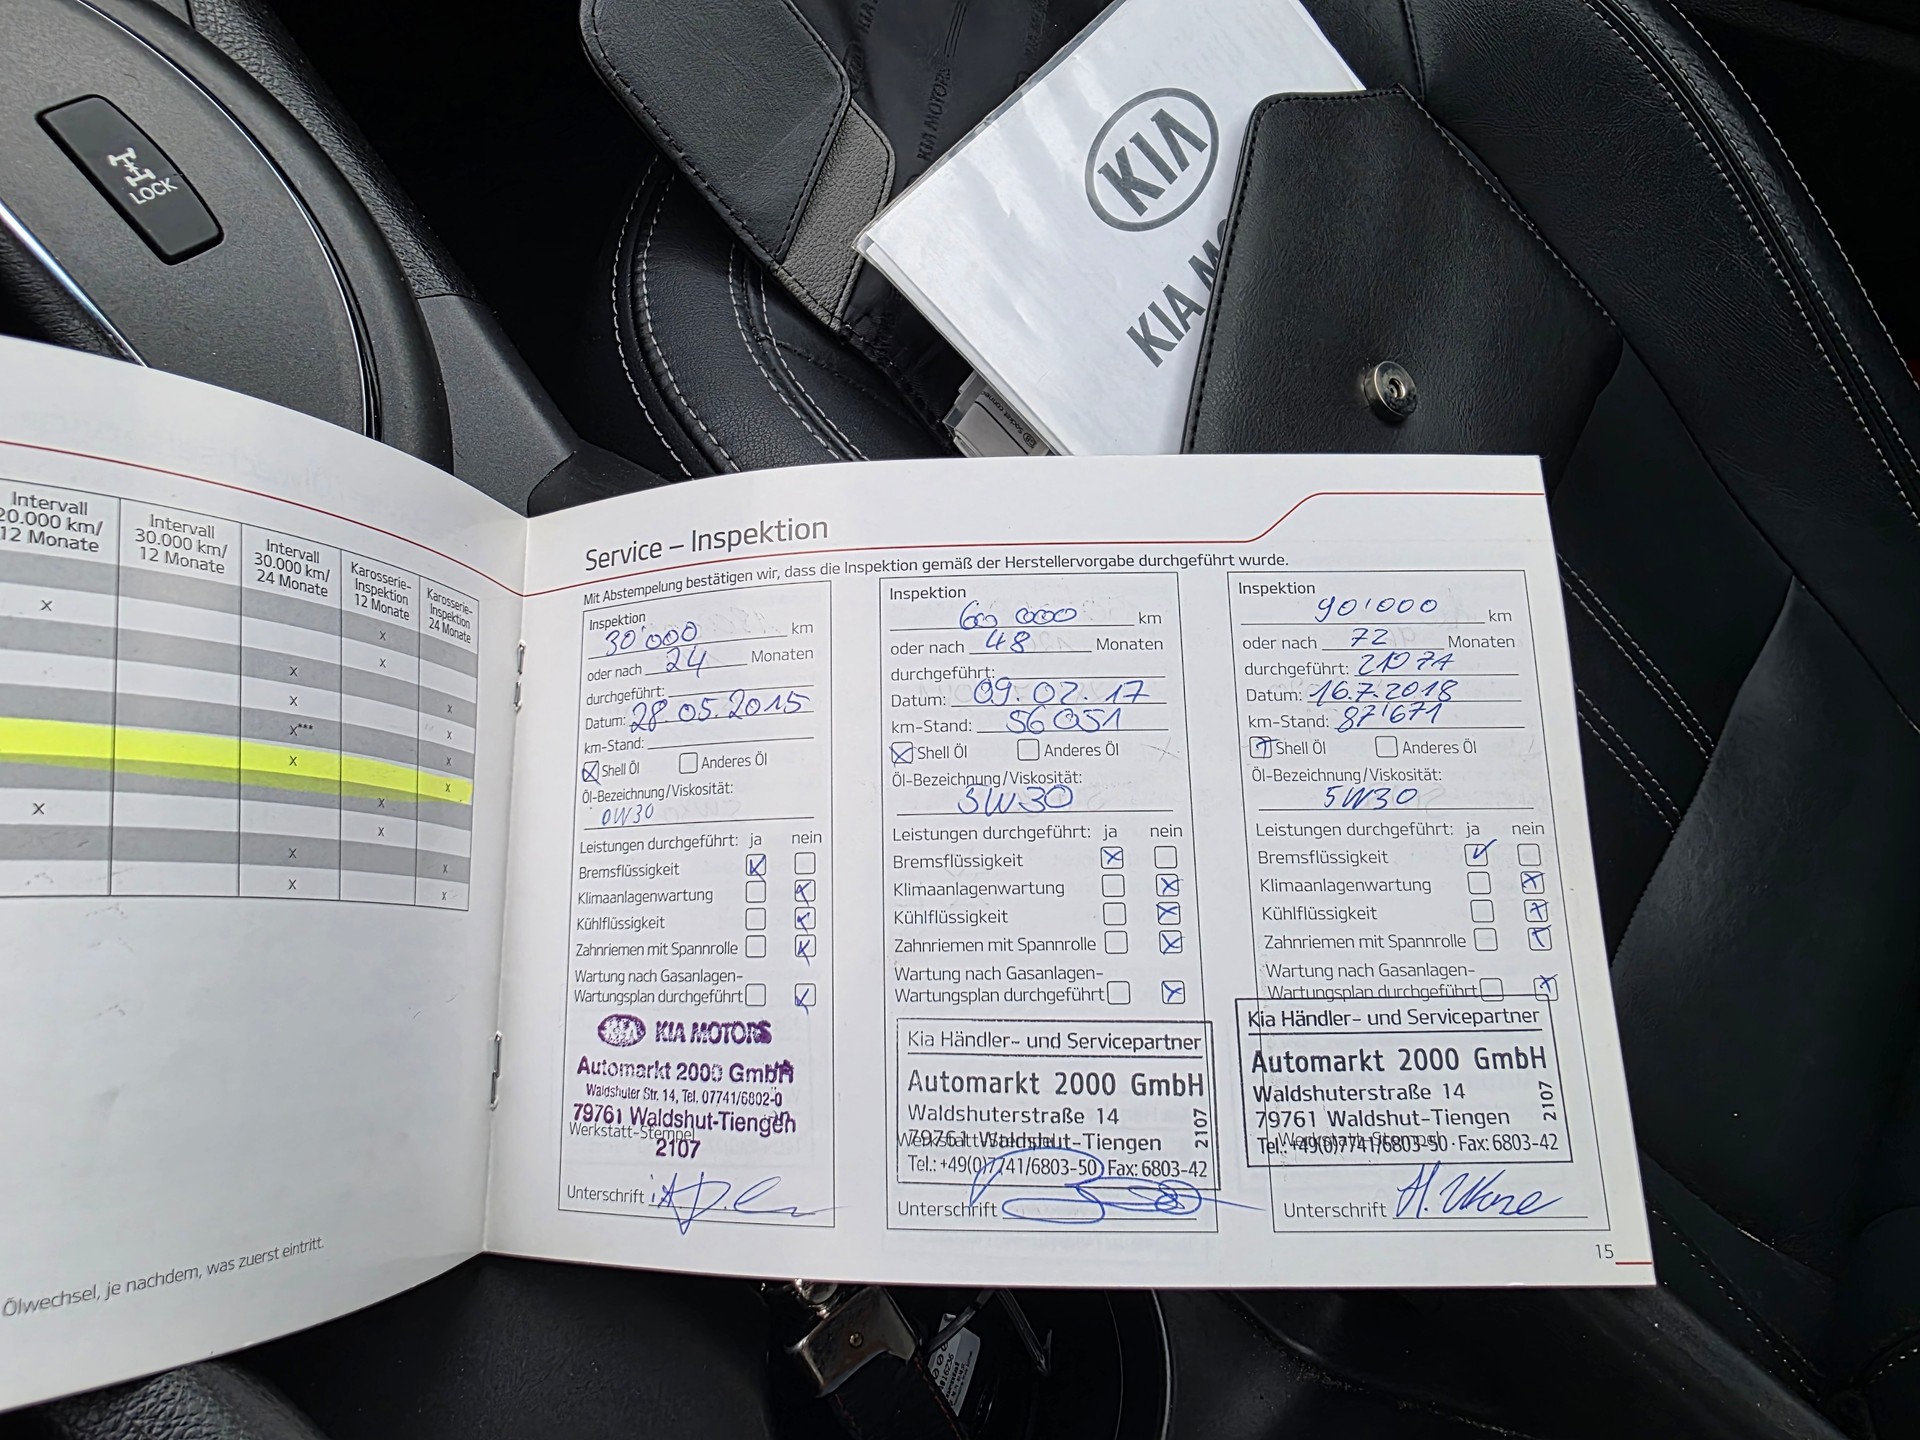 LOCK
KIA MOTORS
KIA
KIA
Intervall
20.000 km/
12 Monate
Intervall
30.000 km/
12 Monate
Intervall
30.000 km/
24 Monate
Karosserie-
Inspektion
12 Monate
Karosserie-
Inspektion
24 Monate
x
x
x
x
x
x
x***
x
x
x
x
x
x
x
x
x
x
x
x
Ölwechsel, je nachdem, was zuerst eintritt.
Service – Inspektion
Mit Abstempelung bestätigen wir, dass die Inspektion gemäß der Herstellervorgabe durchgeführt wurde.
Inspektion
30'000 km
oder nach 24 Monaten
durchgeführt:
Datum: 28.05.2015
km-Stand:
Shell Öl Anderes Öl
Öl-Bezeichnung/Viskosität:
0W30
Leistungen durchgeführt: ja nein
Bremsflüssigkeit
Klimaanlagenwartung
Kühlflüssigkeit
Zahnriemen mit Spannrolle
Wartung nach Gasanlagen-
Wartungsplan durchgeführt
KIA KIA MOTORS
Automarkt 2000 GmbH
Waldshuter Str. 14, Tel. 07741/6802-0
79761 Waldshut-Tiengen
Werkstatt-Stempel
2107
Unterschrift
Inspektion
60 000 km
oder nach 48 Monaten
durchgeführt:
Datum: 09.02.17
km-Stand: 56051
Shell Öl Anderes Öl
Öl-Bezeichnung/Viskosität:
5W30
Leistungen durchgeführt: ja nein
Bremsflüssigkeit
Klimaanlagenwartung
Kühlflüssigkeit
Zahnriemen mit Spannrolle
Wartung nach Gasanlagen-
Wartungsplan durchgeführt
Kia Händler- und Servicepartner
Automarkt 2000 GmbH
Waldshuterstraße 14
79761 Waldshut-Tiengen
Werkstatt-Stempel
Tel.: +49(0)7741/6803-50 Fax: 6803-42
2107
Unterschrift
Inspektion
90'000 km
oder nach 72 Monaten
durchgeführt:
Datum: 16.7.2018
km-Stand: 87'671
Shell Öl Anderes Öl
Öl-Bezeichnung/Viskosität:
5W30
Leistungen durchgeführt: ja nein
Bremsflüssigkeit
Klimaanlagenwartung
Kühlflüssigkeit
Zahnriemen mit Spannrolle
Wartung nach Gasanlagen-
Wartungsplan durchgeführt
Kia Händler- und Servicepartner
Automarkt 2000 GmbH
Waldshuterstraße 14
79761 Waldshut-Tiengen
Werkstatt-Stempel
Tel.: +49(0)7741/6803-50 · Fax: 6803-42
2107
Unterschrift
15